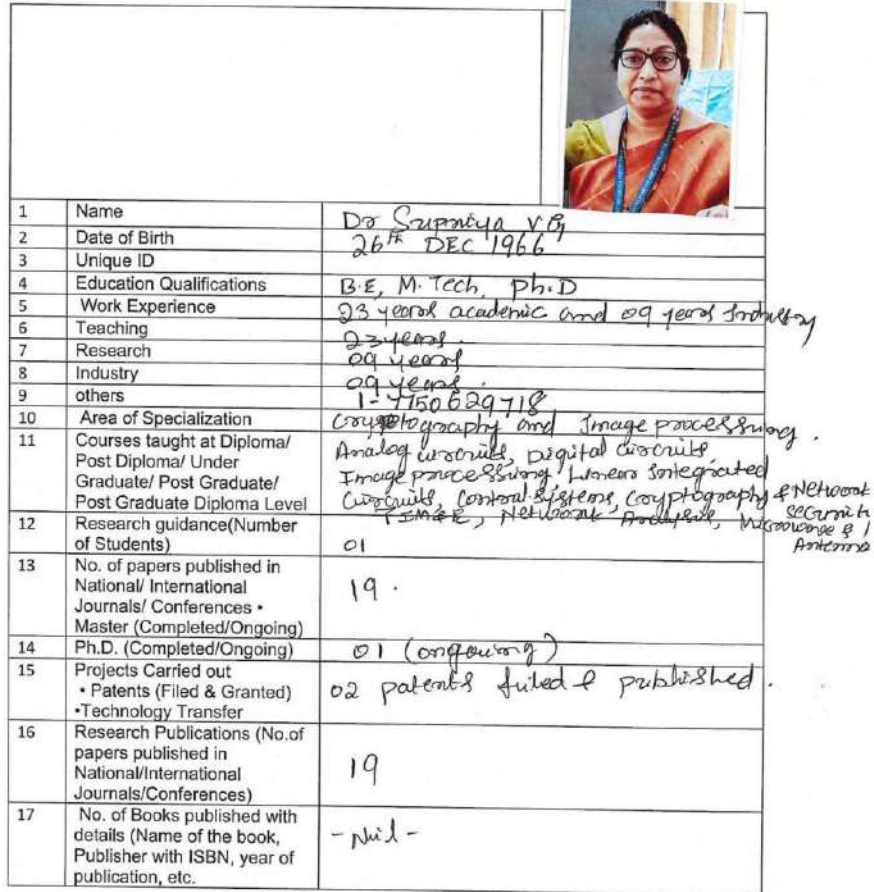 1 Name Dr Supriya V G
2 Date of Birth 26th DEC 1966
3 Unique ID
4 Education Qualifications B.E, M.Tech, Ph.D
5 Work Experience 23 years academic and 09 years Industry
6 Teaching 23 years.
7 Research 09 years
8 Industry 09 years.
9 others 1-7150629718
10 Area of Specialization Cryptography and Image processing.
11 Courses taught at Diploma/ Analog circuits, Digital circuits,
Post Diploma/ Under Image processing, Linear Integrated
Graduate/ Post Graduate/ Circuits, Control Systems, Cryptography & Network
Post Graduate Diploma Level Security
, Network Analysis, Microwave &
Antenna
12 Research guidance(Number
of Students) 01
13 No. of papers published in
National/ International 19.
Journals/ Conferences •
Master (Completed/Ongoing)
14 Ph.D. (Completed/Ongoing) 01 (ongoing)
15 Projects Carried out
• Patents (Filed & Granted) 02 patents filed & published.
•Technology Transfer
16 Research Publications (No.of
papers published in
National/International 19
Journals/Conferences)
17 No. of Books published with
details (Name of the book, - Nil -
Publisher with ISBN, year of
publication, etc.